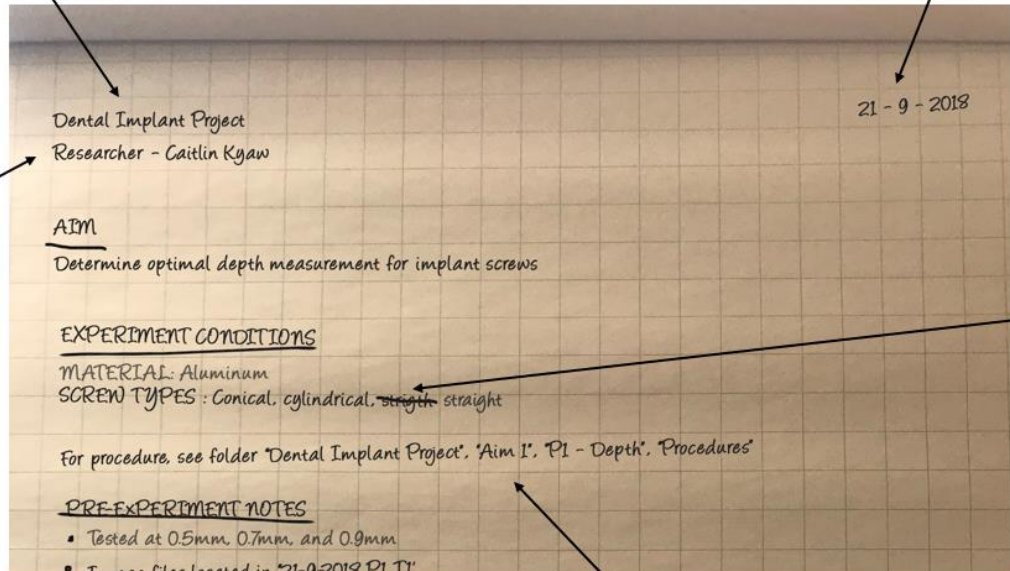 21 - 9 - 2018
Dental Implant Project
Researcher - Caitlin Kyaw
AIM
Determine optimal depth measurement for implant screws
EXPERIMENT CONDITIONS
MATERIAL: Aluminum
SCREW TYPES : Conical, cylindrical, strigth straight
For procedure, see folder "Dental Implant Project", "Aim 1", "P1 - Depth", "Procedures"
PRE-EXPERIMENT NOTES
• Tested at 0.5mm, 0.7mm, and 0.9mm
• Image files located in "21-9-2018 P1 T1"